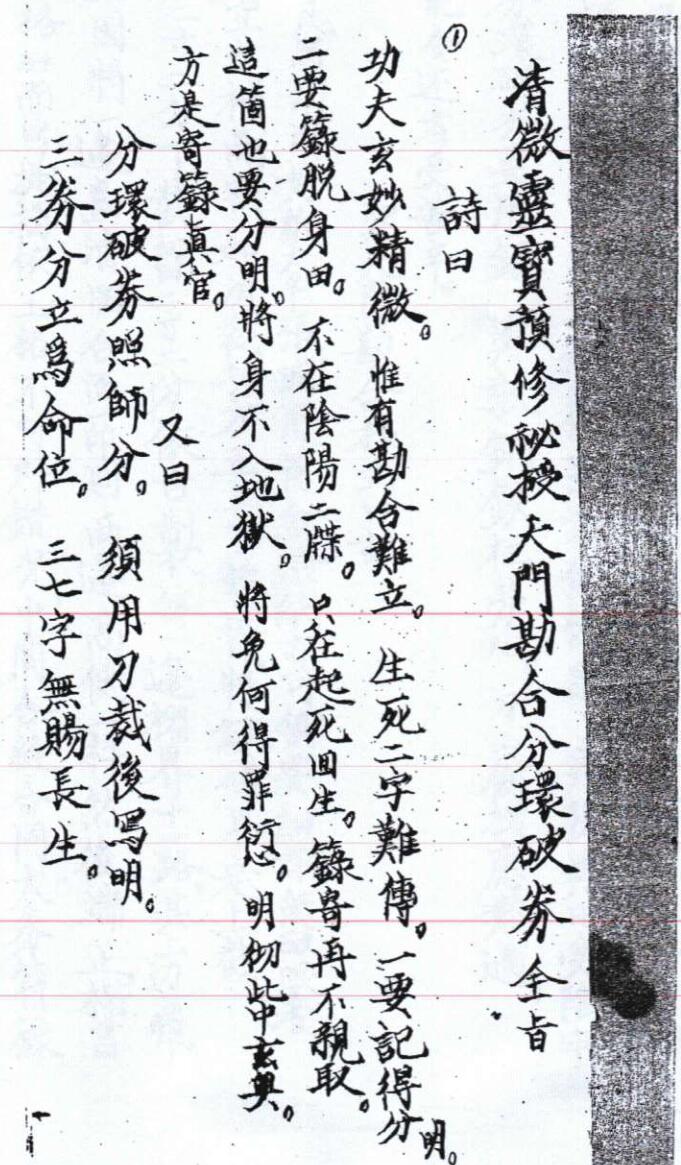 清微靈寶預修祕授天門勘合分環破券全旨
詩曰
①
功夫玄妙精微。惟有勘合難立。生死二字難傳。一要記得分明。
二要籙脱身田。不在陰陽二牒。只在起死回生。籙寄再不親取。
這箇也要分明。將身不入地獄。將免何得罪愆。明彻此中玄奥。
方是寄籙真官。
又曰
分環破券照師分。須用刀裁後寫明。
三券分立爲命位。三七字無賜長生。